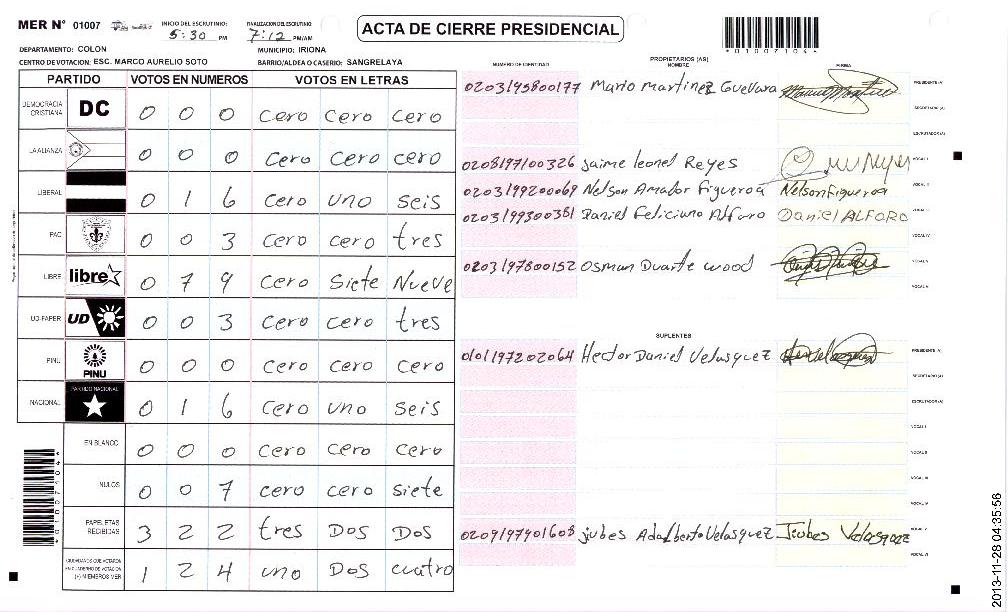 MER N° 01007
INICIO DEL ESCRUTINIO
5:30 PM
FINALIZACION DEL ESCRUTINIO
7:12 PM/AM
ACTA DE CIERRE PRESIDENCIAL
*0100710 4*
DEPARTAMENTO: COLON
MUNICIPIO: IRIONA
CENTRO DE VOTACION: ESC. MARCO AURELIO SOTO
BARRIO/ALDEA O CASERIO: SANGRELAYA
PARTIDO VOTOS EN NUMEROS VOTOS EN LETRAS
DEMOCRACIA CRISTIANA DC 0 0 0 cero cero cero
LA ALIANZA 0 0 0 cero cero cero
LIBERAL 0 1 6 cero uno seis
PAC 0 0 3 cero cero tres
LIBRE libre 0 7 9 cero siete Nueve
UD-FAPER UD 0 0 3 cero cero tres
PINU PINU 0 0 0 cero cero cero
NACIONAL PARTIDO NACIONAL 0 1 6 cero uno seis
EN BLANCO 0 0 0 cero cero cero
NULOS 0 0 7 cero cero siete
PAPELETAS RECIBIDAS 3 2 2 tres Dos Dos
CIUDADANOS QUE VOTARON EN CUADERNO DE VOTACION (+) MIEMBROS MER 1 2 4 uno Dos cuatro
NUMERO DE IDENTIDAD
PROPIETARIOS (AS)
NOMBRE
FIRMA
0203195800177 Mario Martinez Guevara PRESIDENTE (A)
SECRETARIO (A)
ESCRUTADOR (A)
0208197100326 Jaime leonel Reyes VOCAL I
0203199200069 Nelson Amador Figueroa Nelson Figueroa VOCAL II
0203199300381 Daniel Feliciano Alfaro Daniel ALFARO VOCAL III
VOCAL IV
0203197800152 Osman Duarte wood VOCAL V
VOCAL VI
SUPLENTES
0101197202064 Hector Daniel Velasquez PRESIDENTE (A)
SECRETARIO (A)
ESCRUTADOR (A)
VOCAL I
VOCAL II
VOCAL III
VOCAL IV
0209197901608 jiubes Adalberto Velasquez Jiubes Velasquez VOCAL V
VOCAL VI
2013-11-28 04:35:56